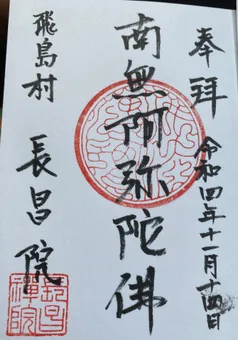 奉拜
令和四年十一月十四日
南無阿弥陀佛
飛島村
長昌院